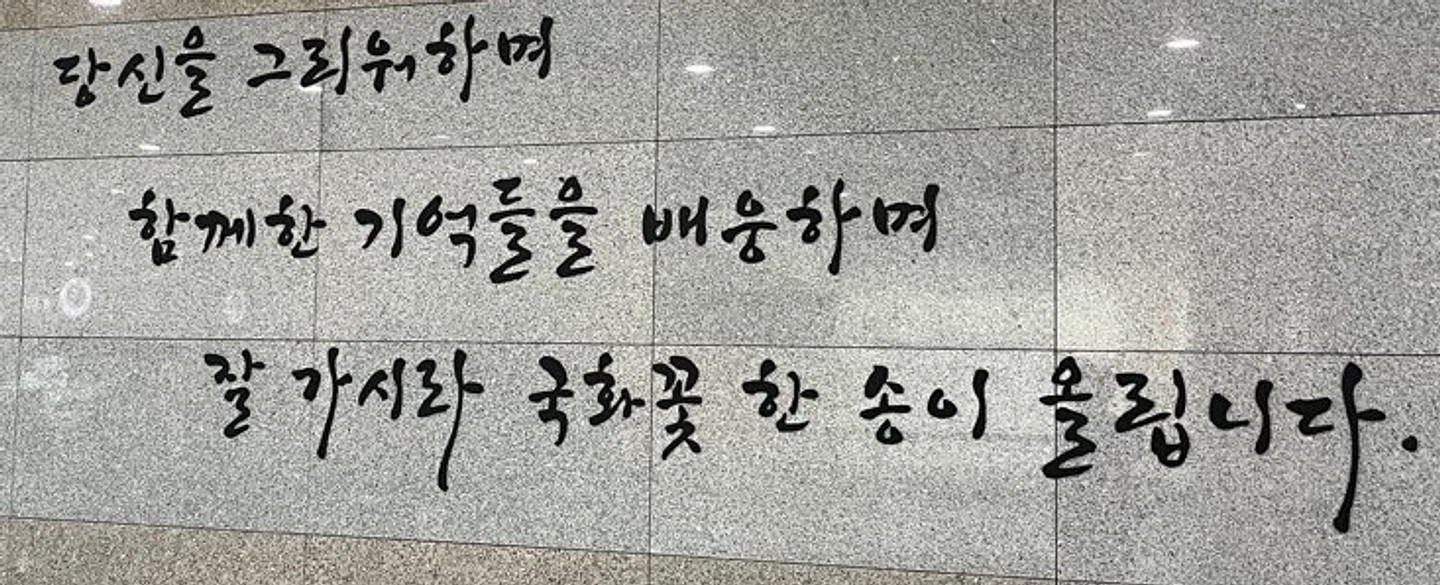 당신을 그리워하며
함께한 기억들을 배웅하며
잘 가시라 국화꽃 한 송이 올립니다.